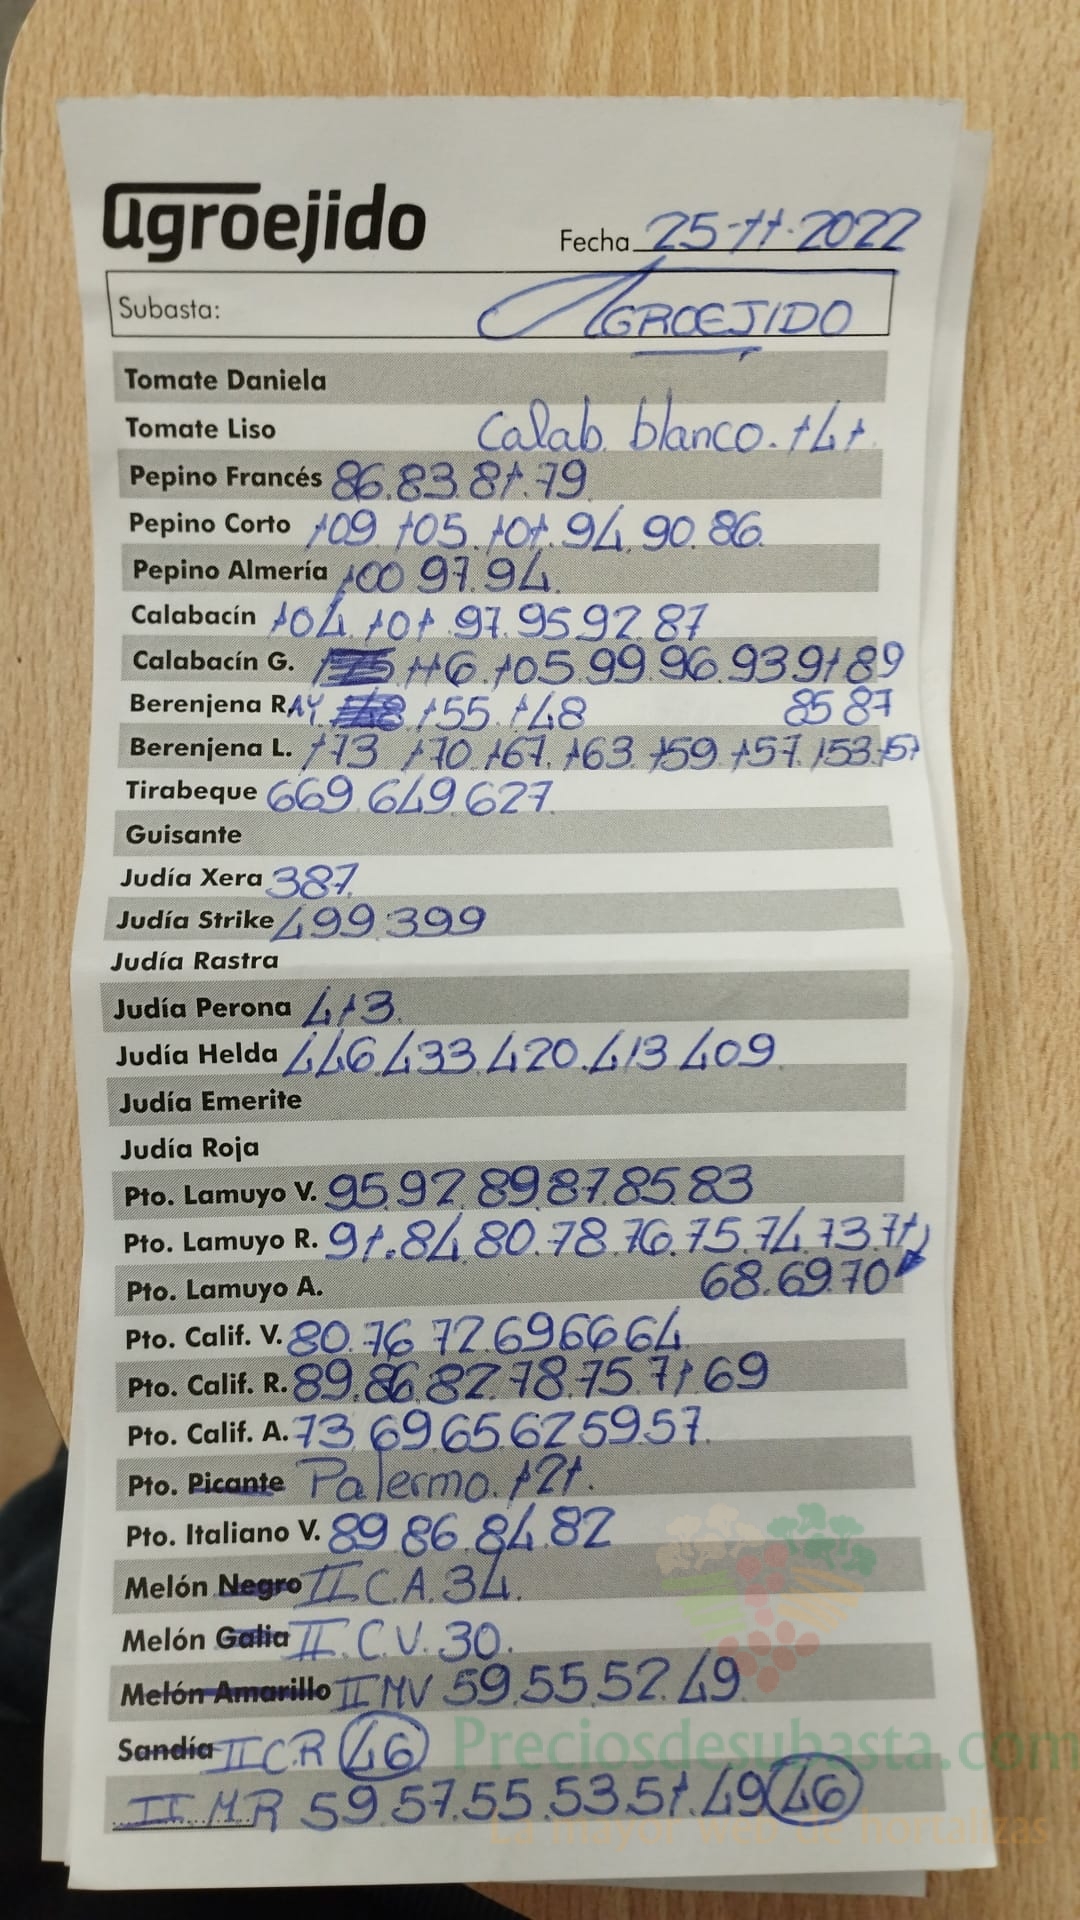 agroejido
Fecha 25-11-2022
Subasta: AGROEJIDO
Tomate Daniela
Tomate Liso Calab. blanco. 141.
Pepino Francés 86.83.81.79
Pepino Corto 109 105.101.94.90.86.
Pepino Almería 100 97.94.
Calabacín 104.101.97.95 92.87
Calabacín G. 116.105.99.96.93 91 89
85 87
Berenjena RAY. 155.148
Berenjena L. 173 170.167.163.159.157.153.151
Tirabeque 669.649.627.
Guisante
Judía Xera 387.
Judía Strike 499.399
Judía Rastra
Judía Perona 413.
Judía Helda 446.433.420.413.409
Judía Emerite
Judía Roja
Pto. Lamuyo V. 95.92.89.87.85.83
Pto. Lamuyo R. 91.84.80.78.76.75.74.73.71
68.69.70
Pto. Lamuyo A.
Pto. Calif. V. 80.76.72.69.66 64.
Pto. Calif. R. 89.86.82.78.75.71.69
Pto. Calif. A. 73.69.65.62 59.57.
Pto. Picante Palermo. 121.
Pto. Italiano V. 89.86.84.82
Melón Negro II C.A. 34.
Melón Galia II.C.V. 30.
Melón Amarillo II MV 59.55.52.49
Sandía II C.R 46
II.M.R 59.57.55.53.51.49 46
Preciosdesubasta.com
La mayor web de hortalizas